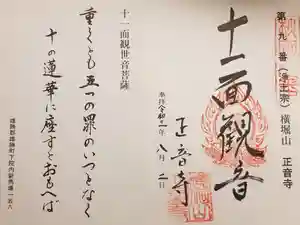 第九番(浄土宗)横堀山 正音寺
十一面観音
奉拝令和二年八月二日
正音寺
十一面観世音菩薩
重くとも五つの罪のいつとなく
十の蓮華に座すとおもへば
雄勝郡雄勝町下院内新馬場一五六